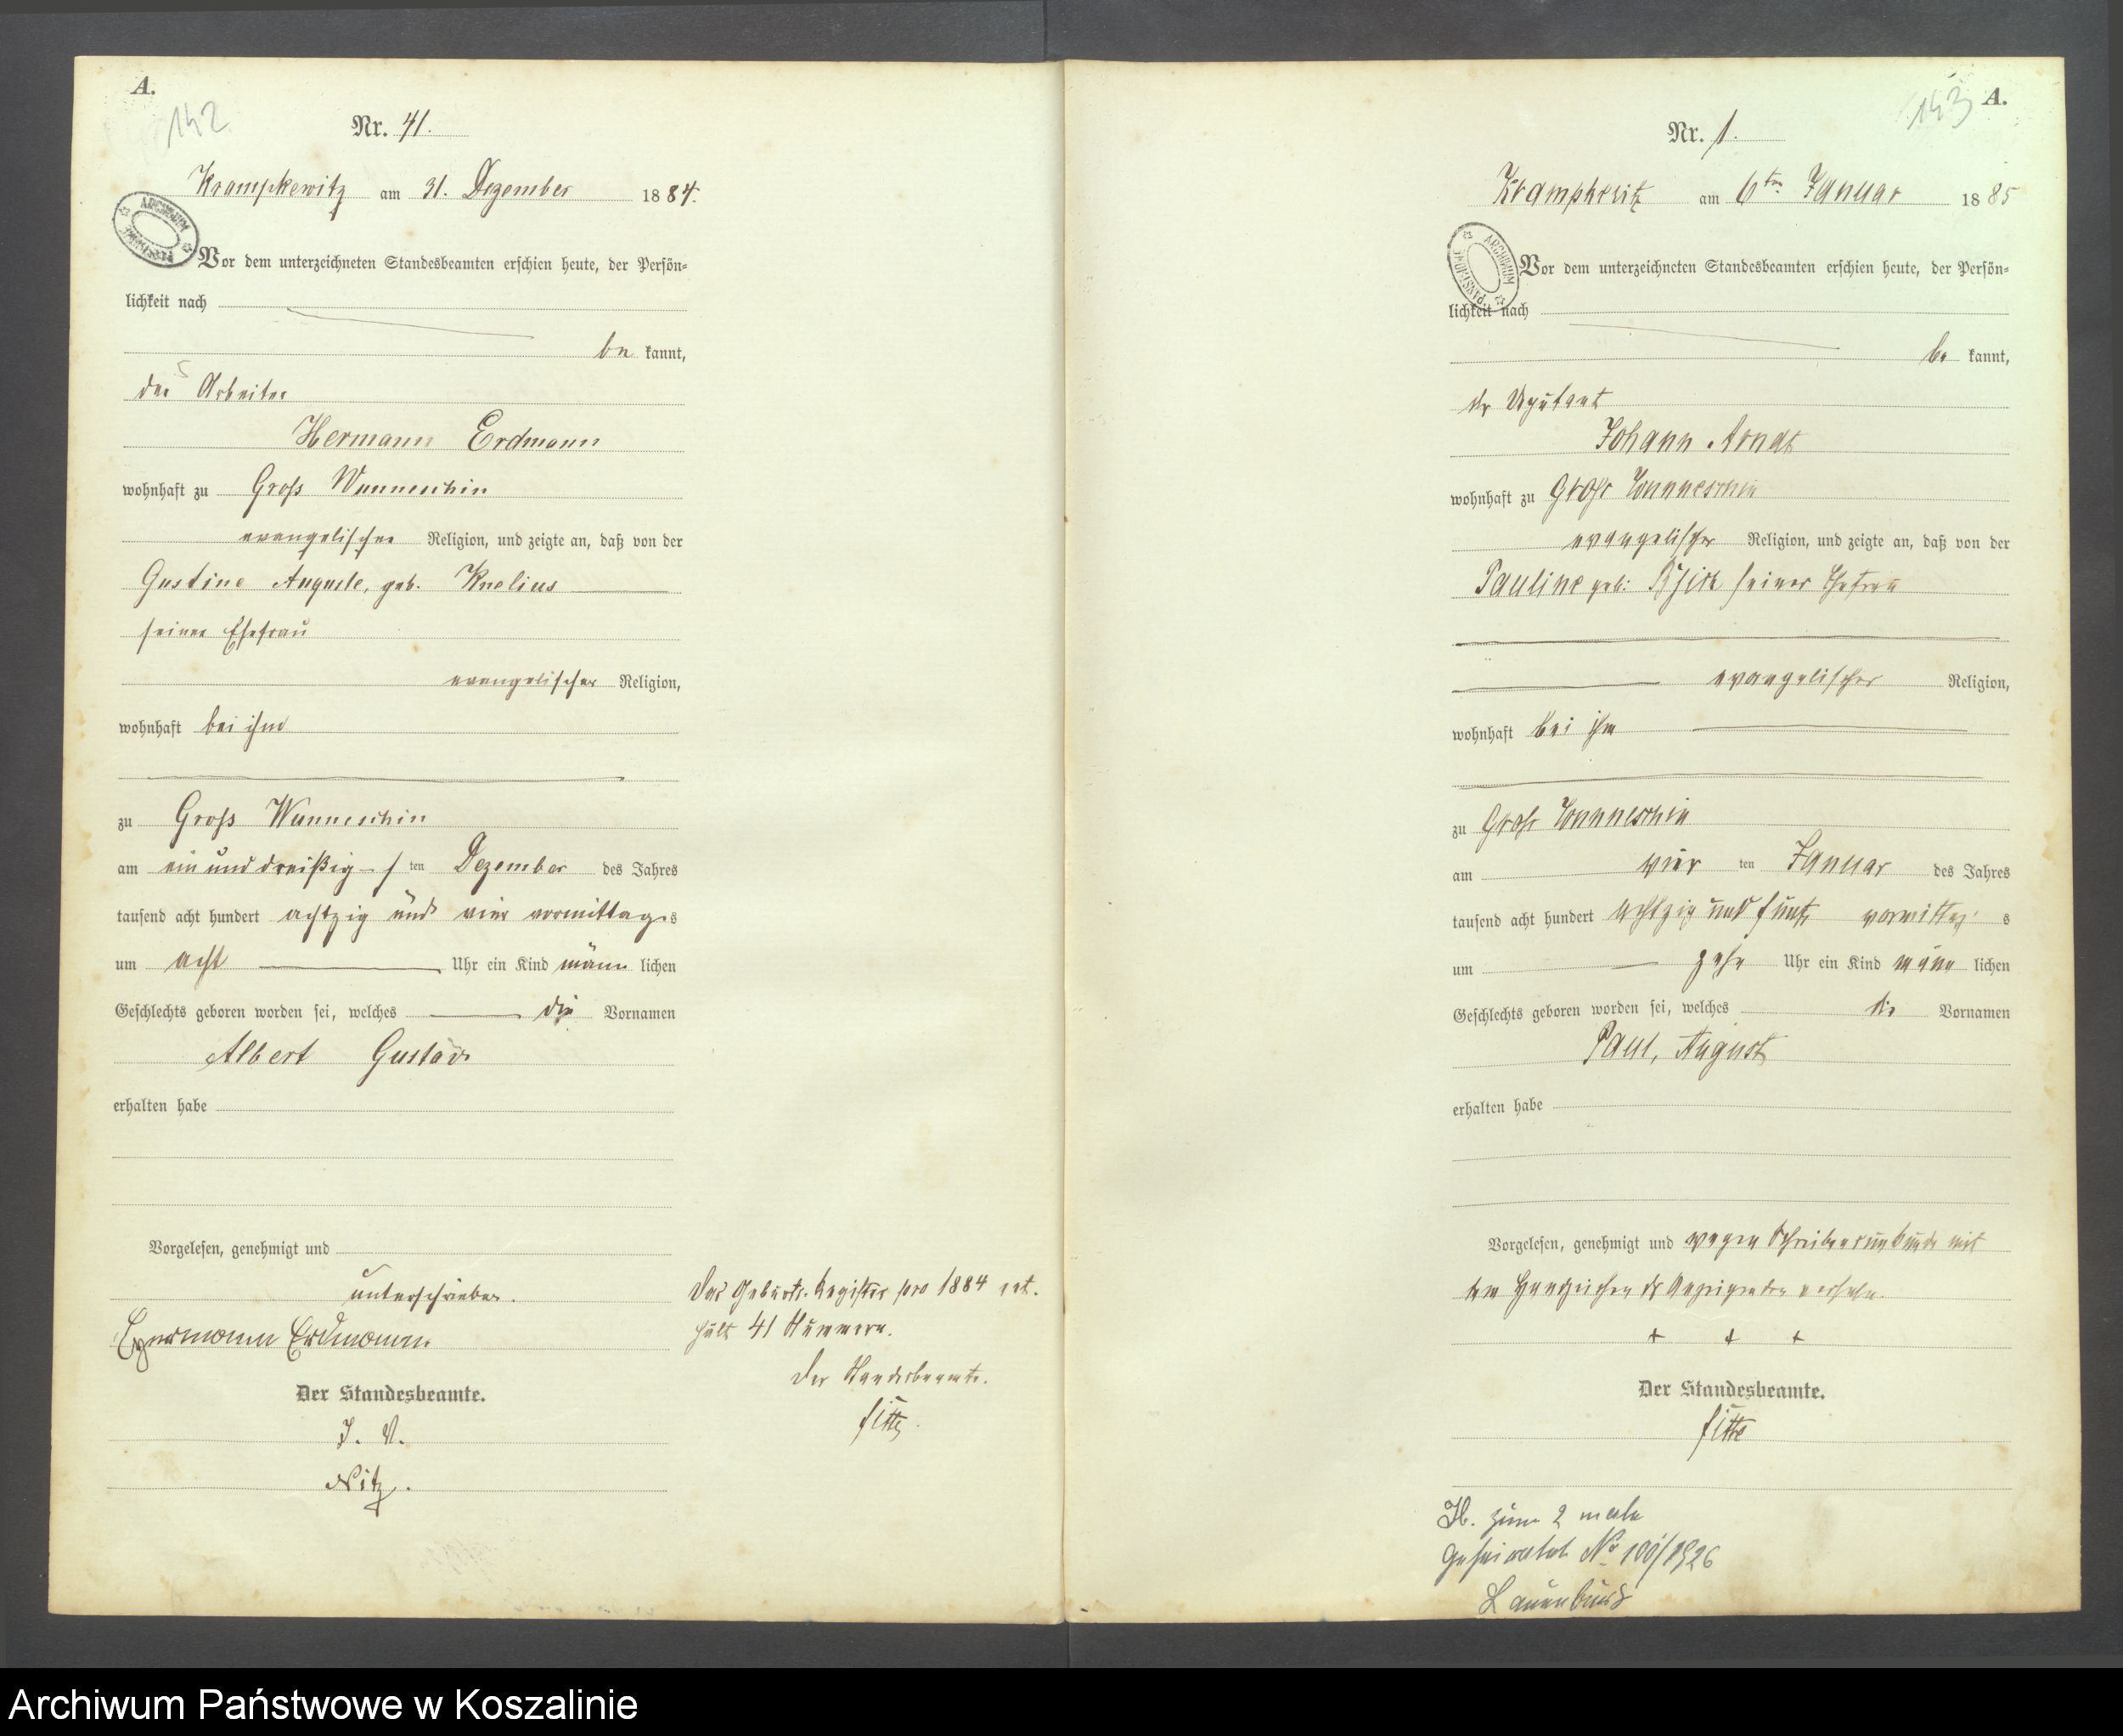 A.
142
Nr. 41.
Krampkewitz am 31. Dezember 1884.
ARCHIWUM
Vor dem unterzeichneten Standesbeamten erschien heute, der Persön=
lichkeit nach
be kannt,
der Arbeiter
Hermann Erdmann
wohnhaft zu Gross Wunneschin
evangelischer Religion, und zeigte an, daß von der
Gustine Auguste, geb.
seiner Ehefrau
evangelischer Religion,
wohnhaft bei ihm
zu Gross Wunneschin
am ein und dreißig s ten Dezember des Jahres
tausend acht hundert achtzig und vier vormittags
um acht Uhr ein Kind männ lichen
Geschlechts geboren worden sei, welches die Vornamen
Albert Gustav
erhalten habe
Vorgelesen, genehmigt und
unterschrieben.
Hermann Erdmann
Der Standesbeamte.
I. V.
Nitz.
Das Geburts-Register pro 1884 ent-
hält 41 Nummern.
Der Standesbeamte.
Fitte.
A.
143
Nr. 1.
Krampkewitz am 6ten Januar 1885
ARCHIWUM PAŃSTWOWE
Vor dem unterzeichneten Standesbeamten erschien heute, der Persön=
lichkeit nach
be kannt,
der Deputant
Johann Arndt
wohnhaft zu Gross Wunneschin
evangelischer Religion, und zeigte an, daß von der
Pauline geb. seiner Ehefrau
evangelischer Religion,
wohnhaft bei ihm
zu Gross Wunneschin
am vier ten Januar des Jahres
tausend acht hundert achtzig und fünf vormittag s
um zehn Uhr ein Kind männ lichen
Geschlechts geboren worden sei, welches die Vornamen
Paul, August
erhalten habe
Vorgelesen, genehmigt und wegen Schreibensunkunde mit
dem Handzeichen des Anzeigenden versehen.
+ + +
Der Standesbeamte.
Fitte
H. zum 2 male
geheiratet No 100/1926
Lauenburg
Archiwum Państwowe w Koszalinie